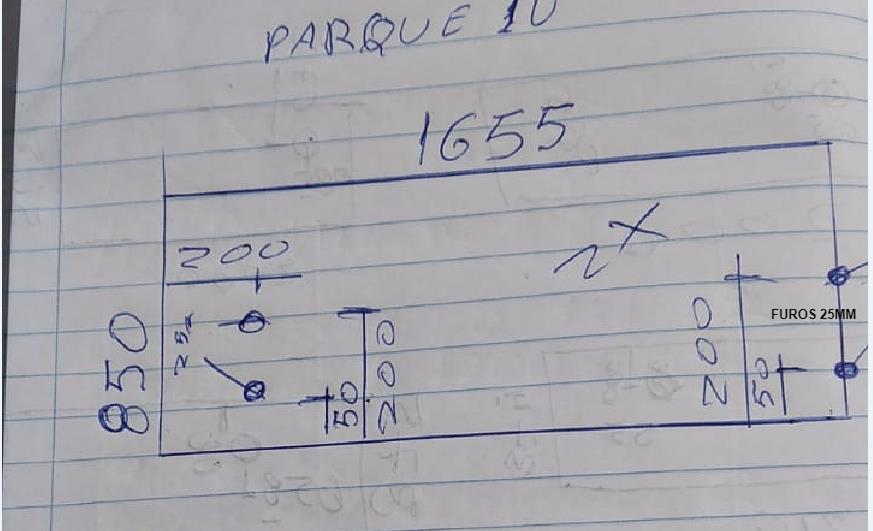 PARQUE 10
1655
200
2X
850
200
50
200
50
FUROS 25MM